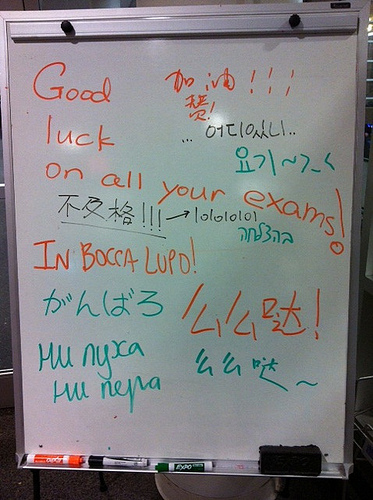 Good
luck
on all your exams!
加油!!!
赞!
... 어디있니..
요기~ㄱ_ㄱ
不及格!!! → 10101010!
בהצלחה
IN BOCCA LUPO!
がんばろ
么么哒!
ни пуха
ни пера
么么哒~
EXPO